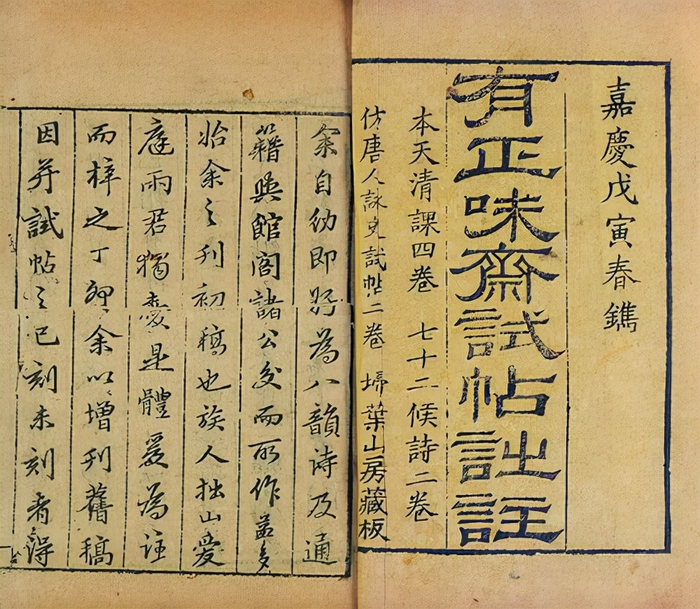 嘉慶戊寅春鐫
有正味齋試帖詩註
本天清課四卷 七十二候詩二卷
仿唐人詠史試帖二卷 埽葉山房藏板
余自幼即好為八韻詩及通
籍與館閣諸公交而所作益多
迨余之刊初稿也族人拙山愛
庭兩君獨愛是體爰為註
而梓之丁卯余以增刊舊稿
因并試帖之已刻未刻者得